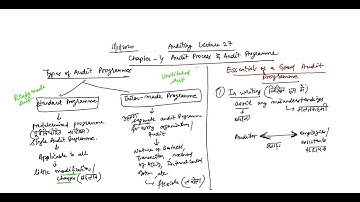 Auditing Lecture 27
Chapter-4 Audit Process & Audit Programme
Types of Audit Programmes
Readymade Suit
Unstitched Suit
Standard Programme
Tailor-made Programme
predetermined programme
Single Audit Programme
Applicable to all
little modification/
change (बदलाव)
separate Audit Programme
for every organisation/
Audit
Nature of Business,
Transaction,
Internal Control
System etc
flexible (लचीला)
Essentials of a Good Audit
Programme
① In Writing (लिखित रूप में)
avoid any misunderstandings
Auditor
employees/
assistants
सहायक